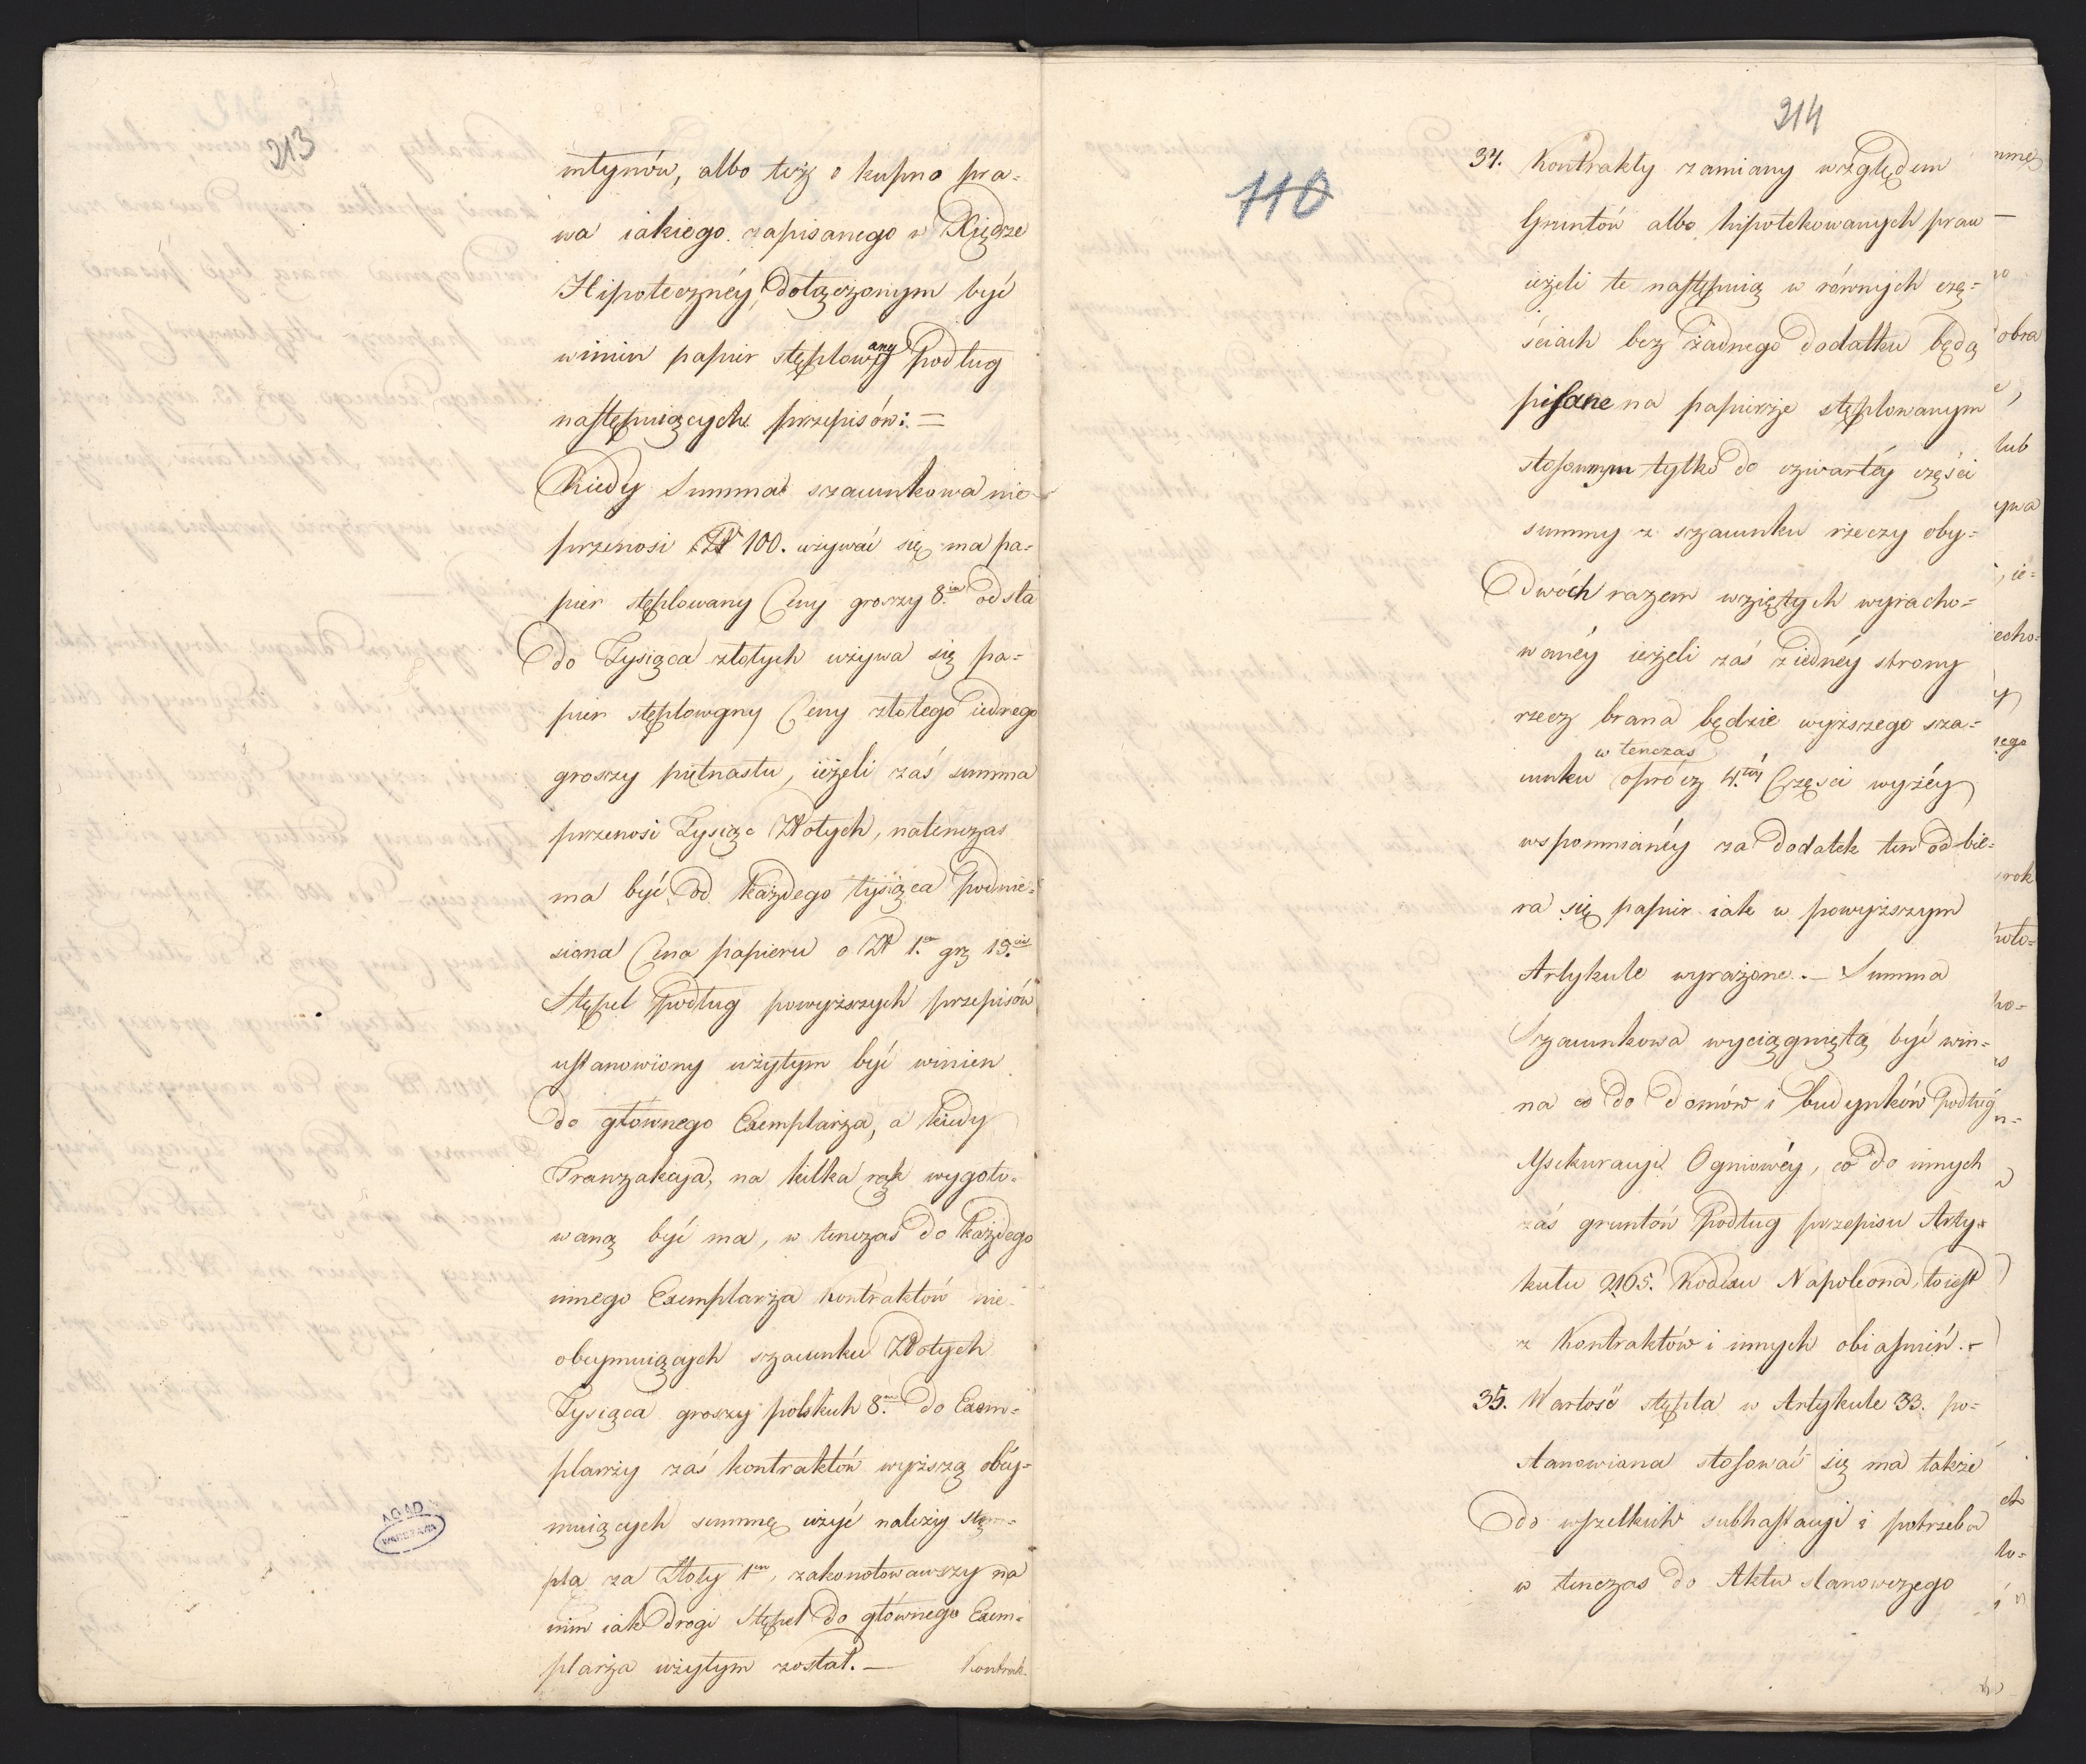 213
młynów, albo też o kupno pra-
wa iakiego zapisanego w Xiędze
Hipoteczney, dołączonym być
winien papier stęplowany podług
następuiących przepisów: =
Kiedy Summa szacunkowa nie-
przenosi Zł 100. używać się ma pa-
pier stęplowany Ceny groszy 8.iu od sta
do Tysiąca złotych używa się pa-
pier stęplowany Ceny złotego iednego
groszy piętnastu, ieżeli zaś summa
przenosi Tysiąc Złotych, natenczas
ma być od każdego tysiąca podnie-
siona Cena papieru o Zł 1.en grz 15.cie
Stępel podług powyższych przepisów
ustanowiony użytym być winien
do głównego Exemplarza, a kiedy
Tranzakcya, na kilka rąk wygoto-
waną być ma, w tenczas do każdego
innego Exemplarza kontraktów nie-
obeymuiących szacunku Złotych
Tysiąca groszy polskich 8.m do Exem-
plarzy zaś kontraktów wyższą obey-
muiących summę użyć należy stęm-
pla za Złoty 1en, zakonotowawszy na
nim iak drogi Stępel do głównego Exem-
plarza użytym został. —
Kontrak-
AGAD
WARSZAWA
110
214
34. Kontrakty zamiany względem
Gruntów albo hipotekowanych praw
ieżeli te następuią w równych czę-
ściach bez żadnego dodatku będą
pisane na papierze stęplowanym
stosownym tylko do czwartéy części
summy z szacunku rzeczy oby-
dwóch razem wziętych wyracho-
wanéy ieżeli zaś z iednéy strony
rzecz brana będzie wyższego sza-
w tenczas
cunku oprócz 4.téy Części wyżéy
wspomnianéy za dodatek ten odbie-
ra się papier iak w powyższym
Artykule wyrażone. — Summa
Szacunkowa wyciągniętą być win-
na co do domów i budynków podług
Assekuracyi Ogniowéy, co do innych
zaś gruntów podług przepisu Arty-
kułu 2165. Kodexu Napoleona, toiest
z Kontraktów i innych obiaśnień. -
35. Wartość stępla w Artykule 33. po-
stanowiona stosować się ma także
do wszelkich subhastacyi i potrzeba
w tenczas do Aktu stanowczego
obra
lub
ywa
echo-
rok